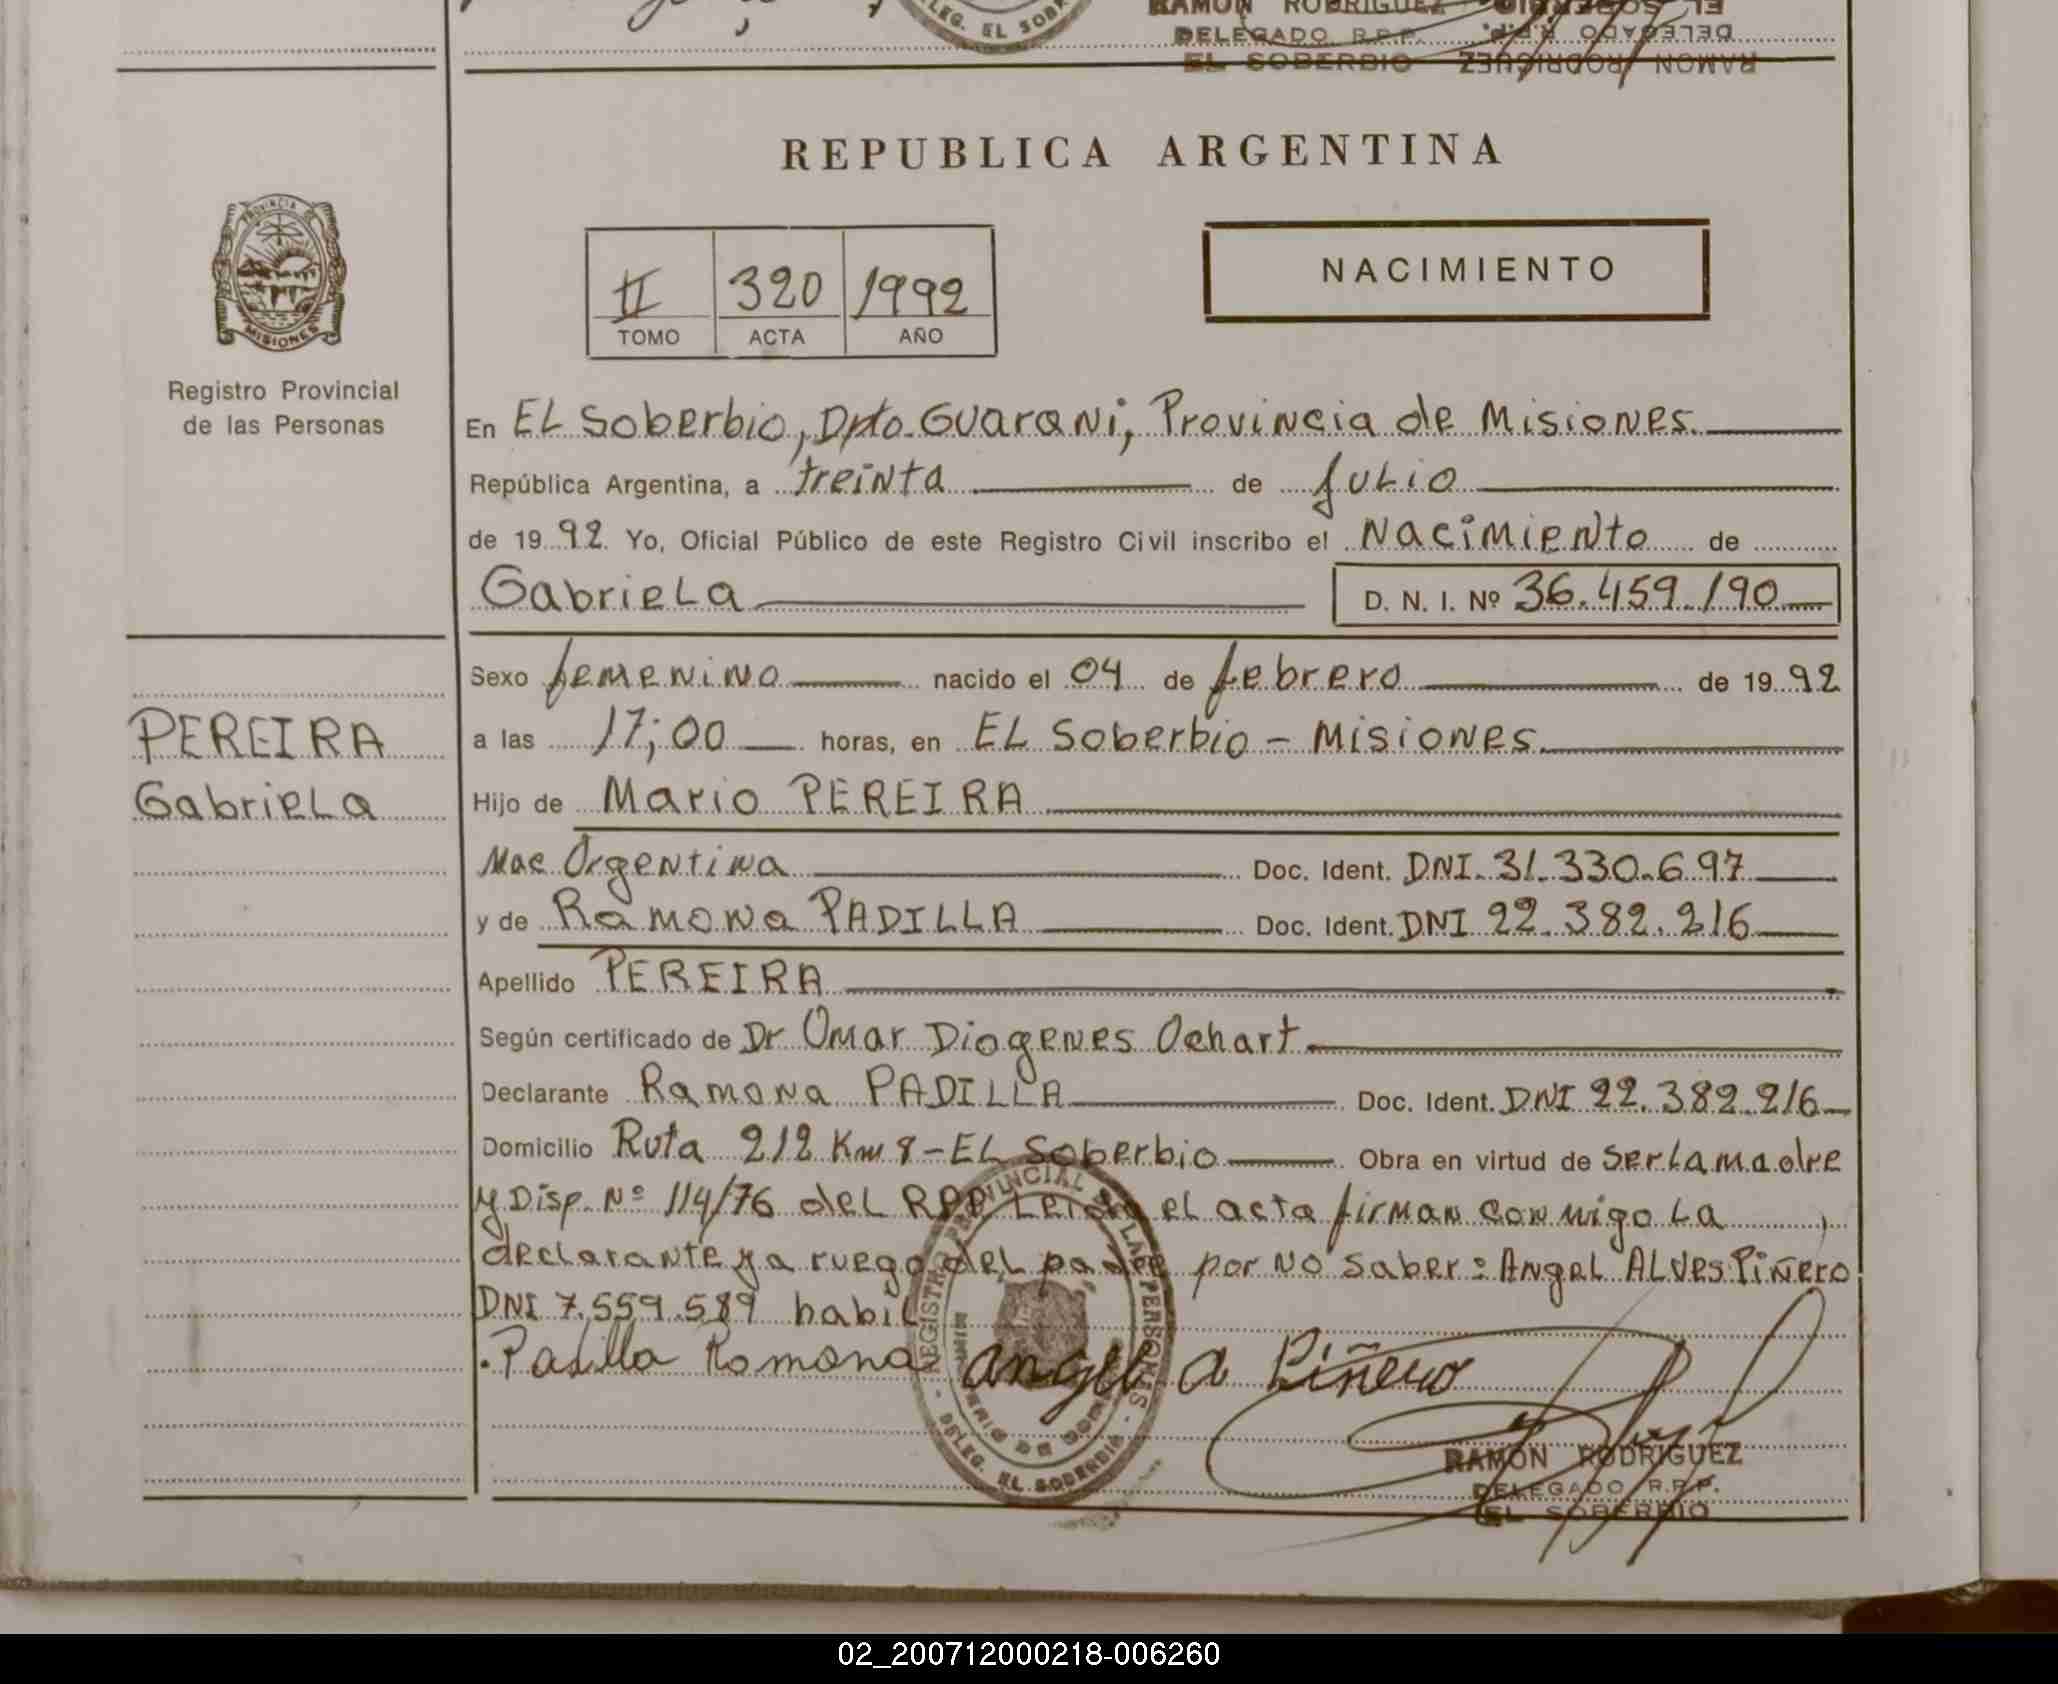 DELEG. EL SOBER
RAMON RODRIGUEZ
DELEGADO R.P.P.
EL SOBERBIO
EL SOBERBIO
DELEGADO R.P.P.
RAMON RODRIGUEZ
REPUBLICA ARGENTINA
PROVINCIA DE
MISIONES
Registro Provincial
de las Personas
II 320 1992
TOMO ACTA AÑO
NACIMIENTO
En EL Soberbio, Dpto. Guarani, Provincia de Misiones.
República Argentina, a treinta de Julio
de 1992 Yo, Oficial Público de este Registro Civil inscribo el Nacimiento de
Gabriela D. N. I. Nº 36.459.190
Sexo femenino nacido el 04 de febrero de 1992
PEREIRA
Gabriela
a las 17;00 horas, en EL Soberbio - Misiones.
Hijo de Mario PEREIRA
Nac Argentina Doc. Ident. DNI. 31.330.697
y de Ramona PADILLA Doc. Ident. DNI 22.382.216
Apellido PEREIRA
Según certificado de Dr Omar Diogenes Ochart.
Declarante Ramona PADILLA Doc. Ident. DNI 22.382.216
Domicilio Ruta 212 Km 8 - EL Soberbio Obra en virtud de ser La madre
y Disp. Nº 114/76 del RPP Leida el acta firman conmigo La
declarante y a ruego del padre por no saber: Angel ALves Piñero
DNI 7.559.589 habil
Padilla Romona angel a Piñero
REGISTRO PROVINCIAL DE LAS PERSONAS
DELEG. EL SOBERBIO
RAMON RODRIGUEZ
DELEGADO R.P.P.
EL SOBERBIO
02_200712000218-006260